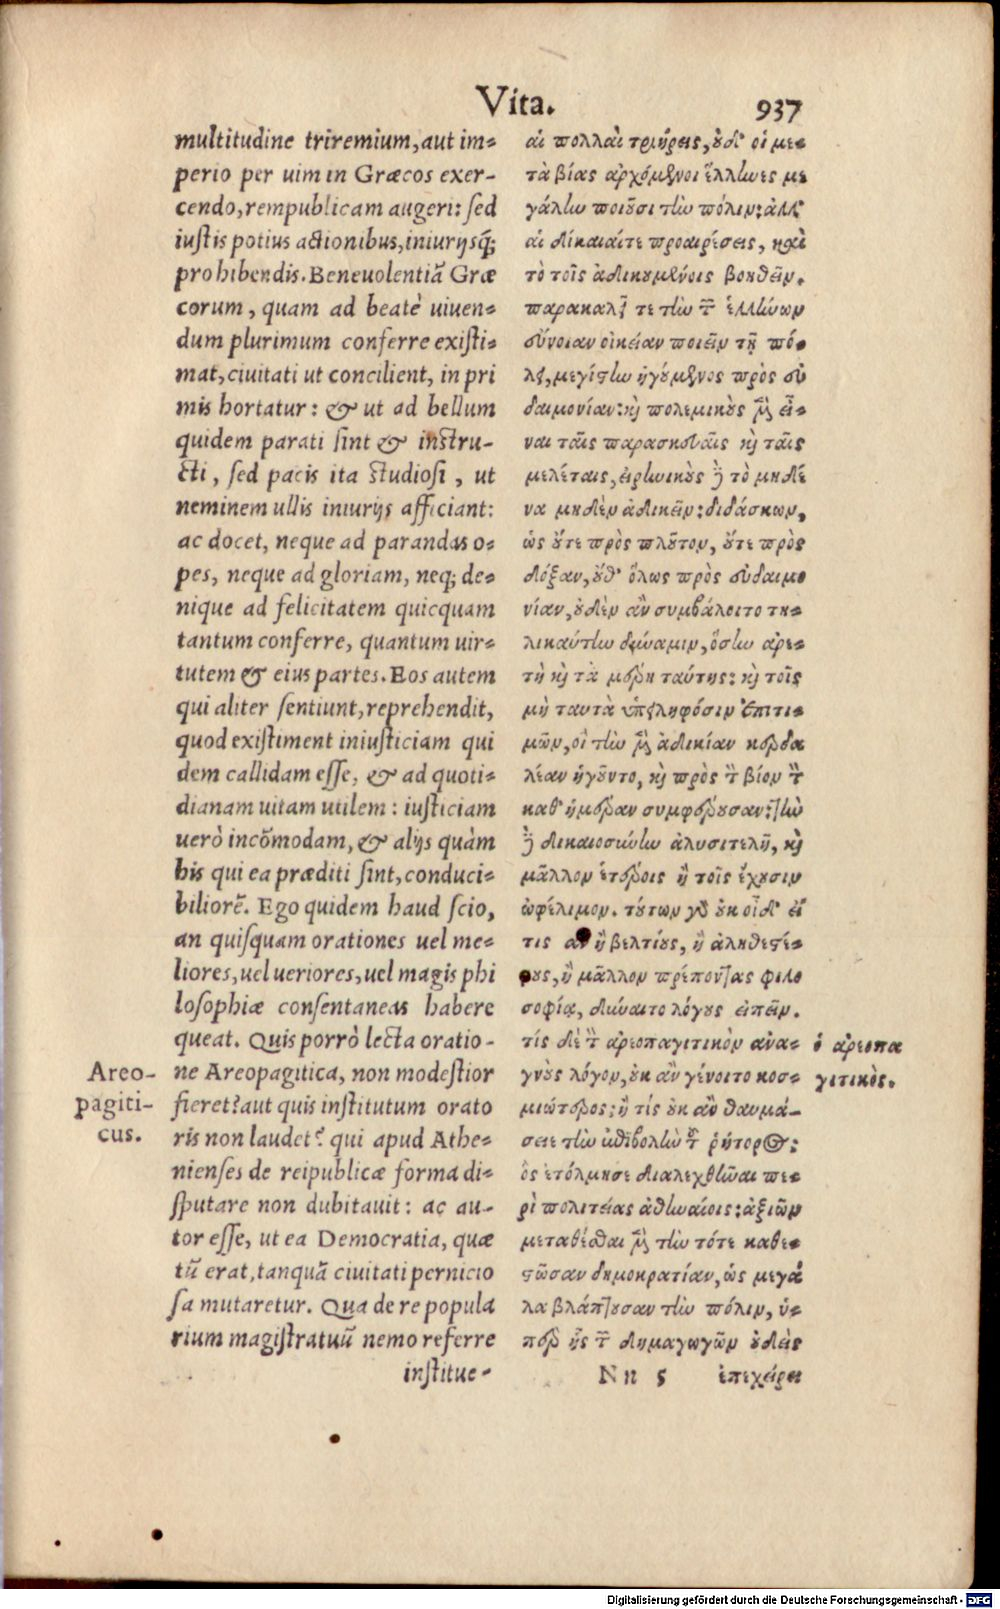 Vita.
937
multitudine triremium, aut im-
perio per uim in Græcos exer-
cendo, rempublicam augeri: sed
iustis potius actionibus, iniurijsq́;
prohibendis. Beneuolentiã Græ
corum, quam ad beatè uiuen-
dum plurimum conferre existi-
mat, ciuitati ut concilient, in pri
mis hortatur: & ut ad bellum
quidem parati sint & instru-
cti, sed pacis ita studiosi, ut
neminem ullis iniurijs afficiant:
ac docet, neque ad parandas o-
pes, neque ad gloriam, neq; de-
nique ad felicitatem quicquam
tantum conferre, quantum uir-
tutem & eius partes. Eos autem
qui aliter sentiunt, reprehendit,
quod existiment iniusticiam qui
dem callidam esse, & ad quoti-
dianam uitam utilem: iusticiam
uerò incõmodam, & alijs quàm
his qui ea præditi sint, conduci-
biliorẽ. Ego quidem haud scio,
an quisquam orationes uel me-
liores, uel ueriores, uel magis phi
losophiæ consentaneas habere
queat. Quis porrò lecta oratio-
ne Areopagitica, non modestior
fieret? aut quis institutum orato
ris non laudet? qui apud Athe-
nienses de reipublicæ forma di-
sputare non dubitauit: ac au-
tor esse, ut ea Democratia, quæ
tũ erat, tanquã ciuitati pernicio
sa mutaretur. Qua de re popula
rium magistratuũ nemo referre
institue-
Areo-
pagiti-
cus.
αἱ πολλαὶ τριήρεις, οὐδ' οἱ με-
τὰ βίας ἀρχόμενοι ἕλληνες με
γάλην ποιοῦσι τὴν πόλιν: ἀλλ'
αἱ δίκαιαίτε προαιρέσεις, καὶ
τὸ τοῖς ἀδικουμένοις βοηθεῖν.
παρακαλεῖ τε τὴν τῶν ἑλλήνων
σύνοιαν οἰκείαν ποιεῖν τῇ πό-
λει, μεγίστην ἡγούμενος πρὸς εὐ
δαιμονίαν: καὶ πολεμικοὺς μὲν εἶ-
ναι ταῖς παρασκευαῖς καὶ ταῖς
μελέταις, εἰρηνικοὺς δὲ τὸ μηδέ
να μηδὲν ἀδικεῖν: διδάσκων,
ὡς οὔτε πρὸς πλοῦτον, οὔτε πρὸς
δόξαν, οὔθ' ὅλως πρὸς εὐδαιμο
νίαν, οὐδὲν ἂν συμβάλοιτο τη-
λικαύτην δύναμιν, ὅσην ἀρε-
τὴ καὶ τὰ μέρη ταύτης: καὶ τοῖς
μὴ ταυτὰ ὑπειληφόσιν ἐπιτι-
μῶν, οἳ τὴν μὲν ἀδικίαν κερδα
λέαν ἡγοῦντο, καὶ πρὸς τὸν βίον τὸν
καθ' ἡμέραν συμφέρουσαν: τὴν
δὲ δικαιοσύνην ἀλυσιτελῆ, καὶ
μᾶλλον ἑτέροις ἢ τοῖς ἔχουσιν
ὠφέλιμον. τούτων γὰρ οὐκ οἶδ' εἴ
τις ἂν ἢ βελτίους, ἢ ἀληθεστέ-
ρους, ἢ μᾶλλον πρέποντας φιλο
σοφίᾳ, δύναιτο λόγους εἰπεῖν.
τίς δὲ τὸν ἀρεοπαγιτικὸν ἀνα-
γνοὺς λόγον, οὐκ ἂν γένοιτο κοσ-
μιώτερος: ἢ τίς οὐκ ἂν θαυμά-
σειε τὴν ἐπιβολὴν τοῦ ῥήτορος:
ὃς ἐτόλμησε διαλεχθῆναι πε-
ρὶ πολιτείας ἀθηναίοις: ἀξιῶν
μεταθέσθαι μὲν τὴν τότε καθε-
στῶσαν δημοκρατίαν, ὡς μεγά
λα βλάπτουσαν τὴν πόλιν, ὑ-
πὲρ ἧς τῶν δημαγωγῶν οὐδεὶς
Nn 5 ἐπεχείρει
ὁ ἀρεοπα
γιτικὸς.
Digitalisierung gefördert durch die Deutsche Forschungsgemeinschaft - DFG